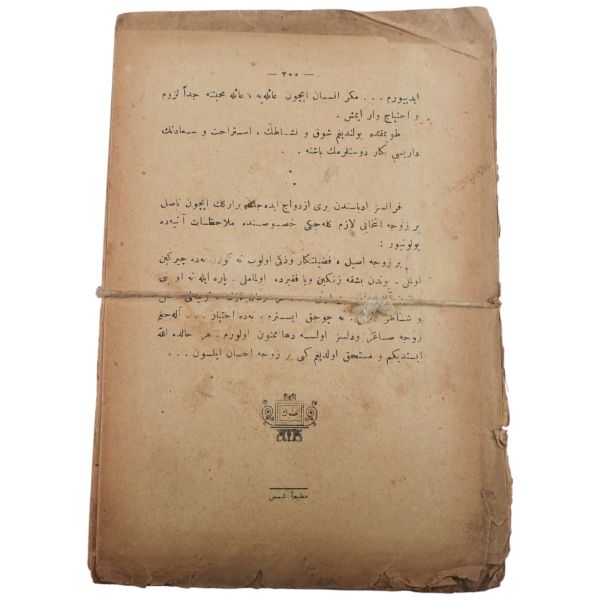 — ٣٠٠ —
ایدییورم . . . مكر انسان ایچون عائله‌یه ، عائله محبتنه جداً لزوم
و احتیاج وار ایمش .
طویمقده بولندیغم شوق و نشاطك ، استراحت و سعادتك
داریسی بكار دوستلرمك باشنه .
فرانسز ادباسندن بری ازدواج ایده‌جك برارككك ایچون ناصل
بر زوجه انتخابی لازم كله‌جكی خصوصنده ملاحظات آتیه‌ده
بولونیور :
بر زوجه اصیل ، فضیلتكار وذكی اولوب نه كوزل نه‌ده چیركین
اولملی . بوندن بشقه زنكین ویا فقیرده اولماملی . پاره ایله نه او بی
و شاطر نه چوجق ایسترم . نه‌ده اختیار . . . آله‌جغم
زوجه صاغر ودلسز اولسه دها ممنون اولورم . هر حالده الله
ایستدیكم و مستحق اولدیغم كبی بر زوجه احسان ایلسون . . .
صوك
مطبعهٔ شمس